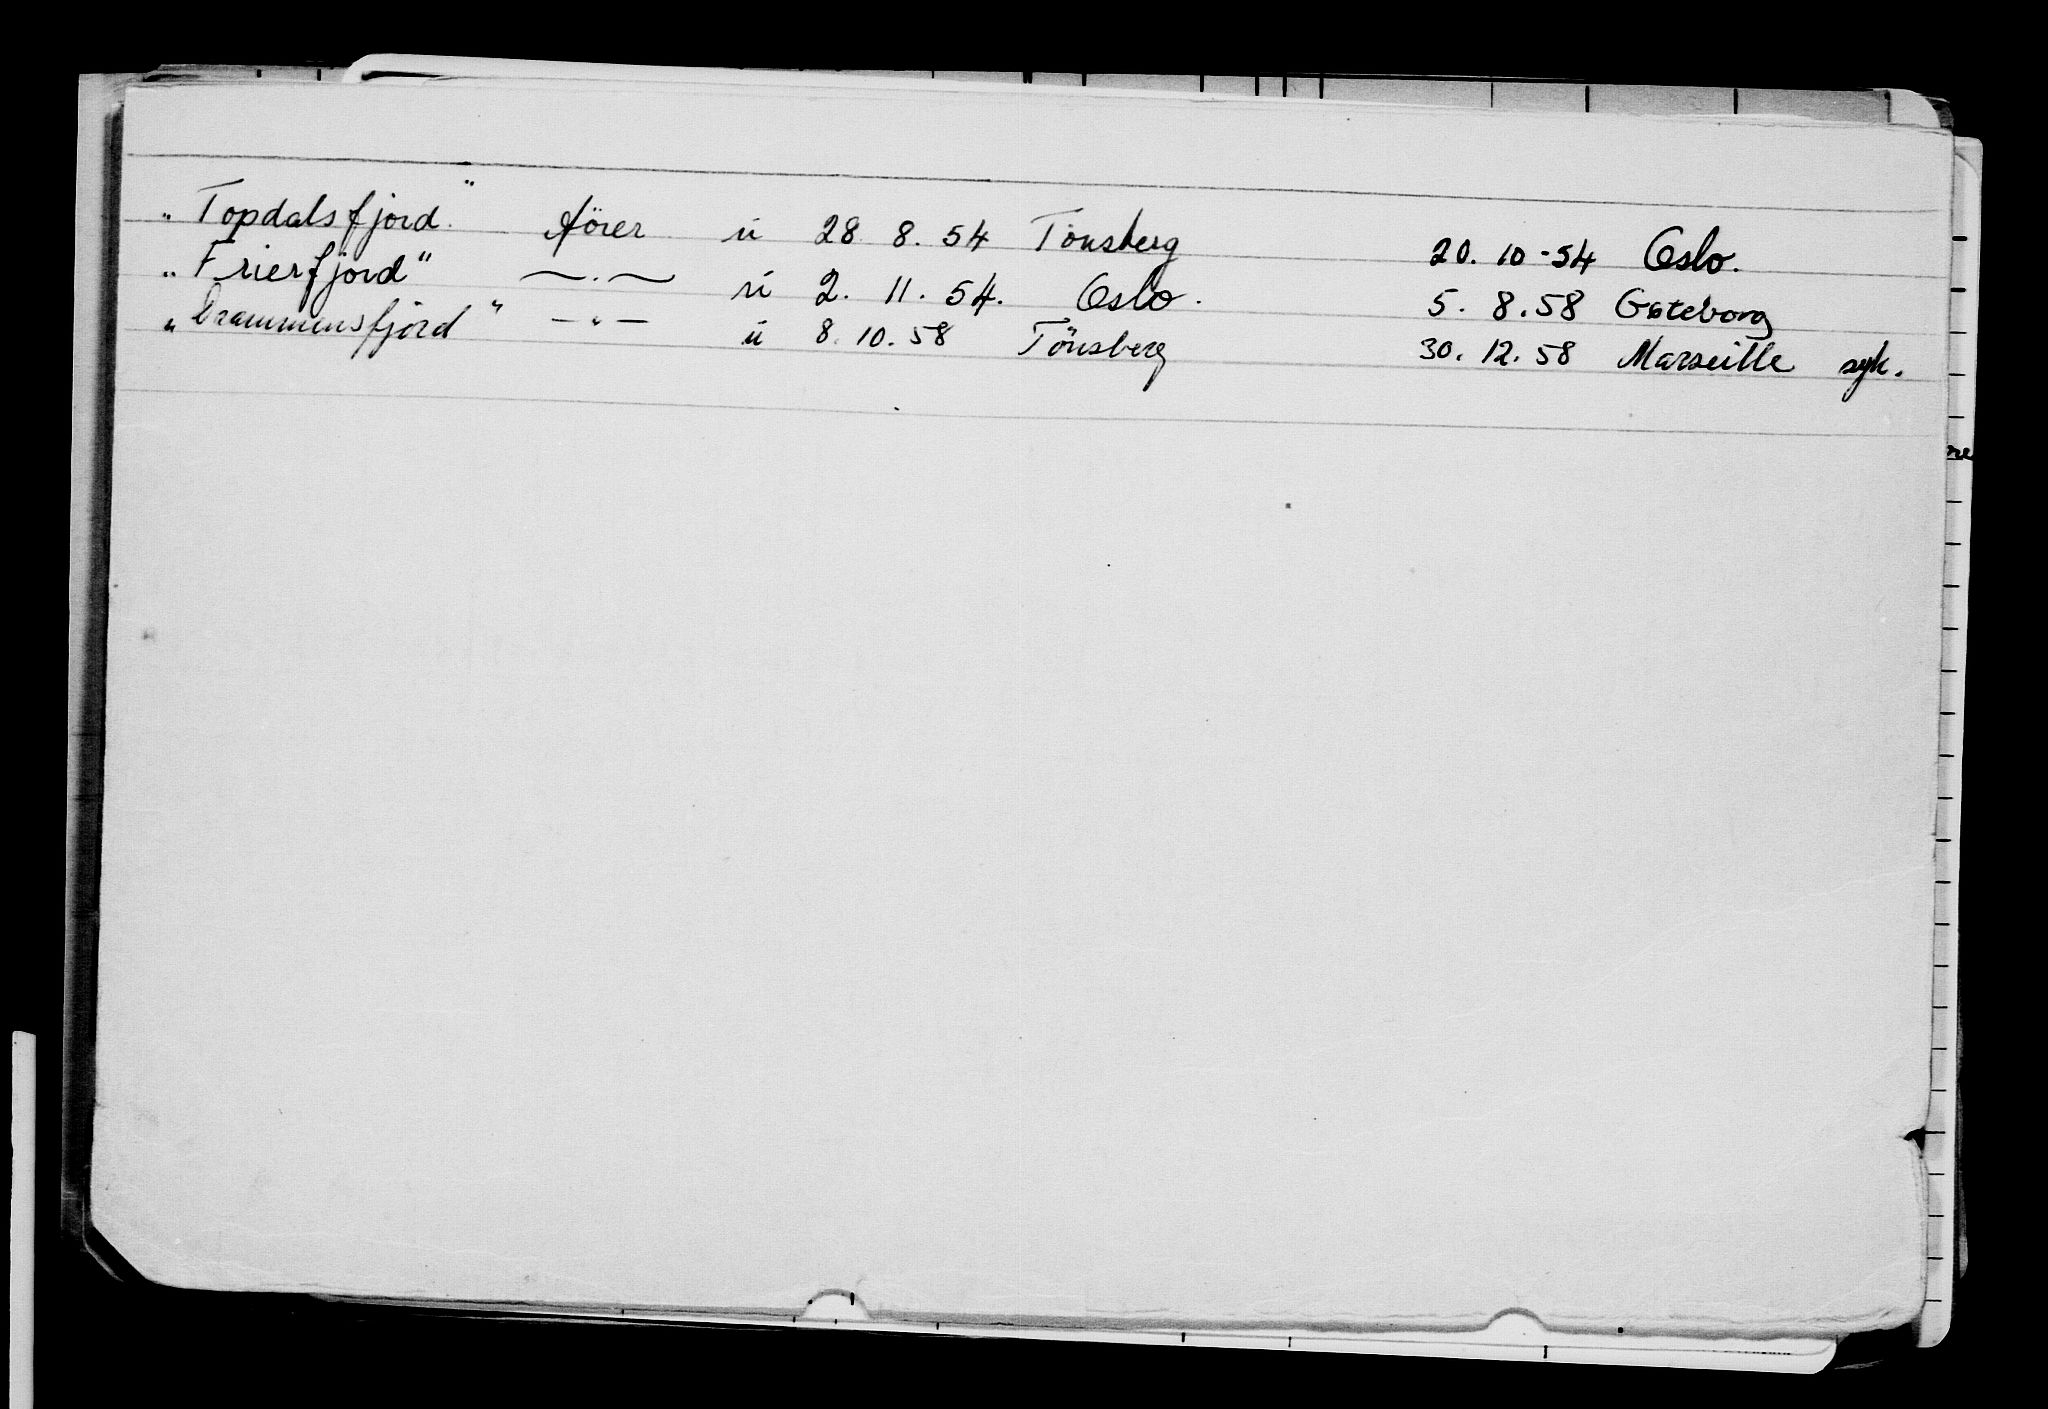 "Topdalsfjord" förer u 28 8. 54 Tönsberg 20. 10 - 54 Oslo.
"Frierfjord" —·— u 2. 11. 54. Oslo. 5. 8. 58 Gøteborg
"Drammensfjord" —"— u 8. 10. 58 Tönsberg 30. 12. 58 Marseille syk.